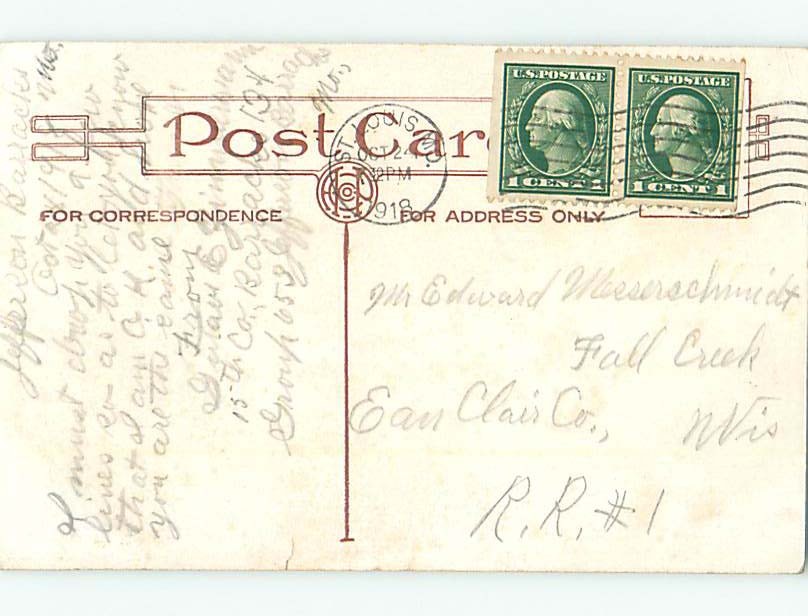 Post Card
FOR CORRESPONDENCE
FOR ADDRESS ONLY
U.S. POSTAGE
1 CENT 1
U.S. POSTAGE
1 CENT 1
ST. LOUIS, MO.
OCT 24
12 PM
1918
Jefferson Barracks Mo.
Oct
I must drop you a few
lines so as to let you know
that I am O.K. and hope
you are the same
From
E. Zimmermann
15th Co, Barrack 134
Group 653 Jeff Barracks
Mo.,
Mr Edward Messerschmidt
Fall Creek
Eau Clair Co., Wis
R.R. #1